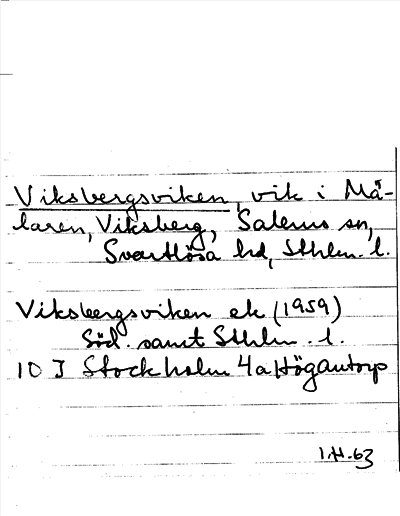 Viksbergsviken, vik i Mä-
laren, Viksberg, Salems sn,
Svartlösa hd, Sthlm. l.
Viksbergsviken ek (1959)
Söd. samt Sthlm. l.
10 I Stockholm 4a Högantorp
63